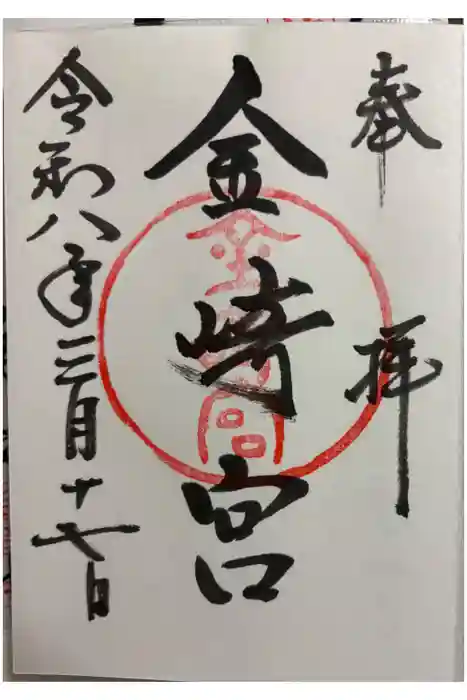 奉拝
金崎宮
令和八年三月十七日
金崎宮